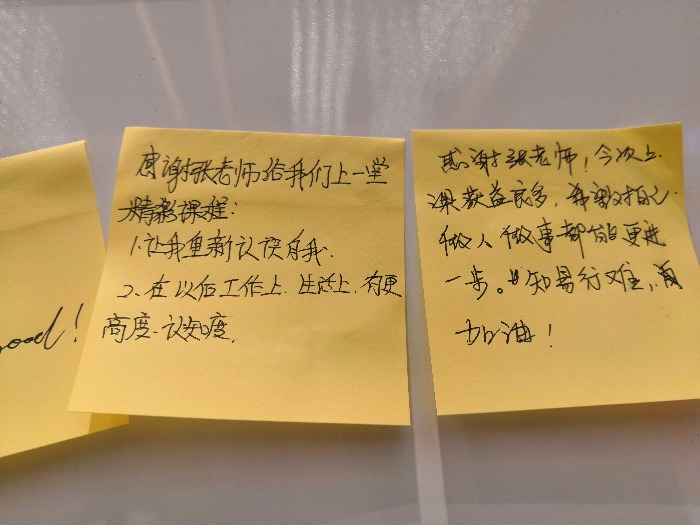 ood!
感谢张老师给我们上一堂
精彩课程：
1.让我重新认识自我.
2、在以后工作上.生活上.有更
高度.认知度.
感谢张老师，今次上
课获益良多，希望对自己
做人做事都能更进
一步。知易行难，
加油！